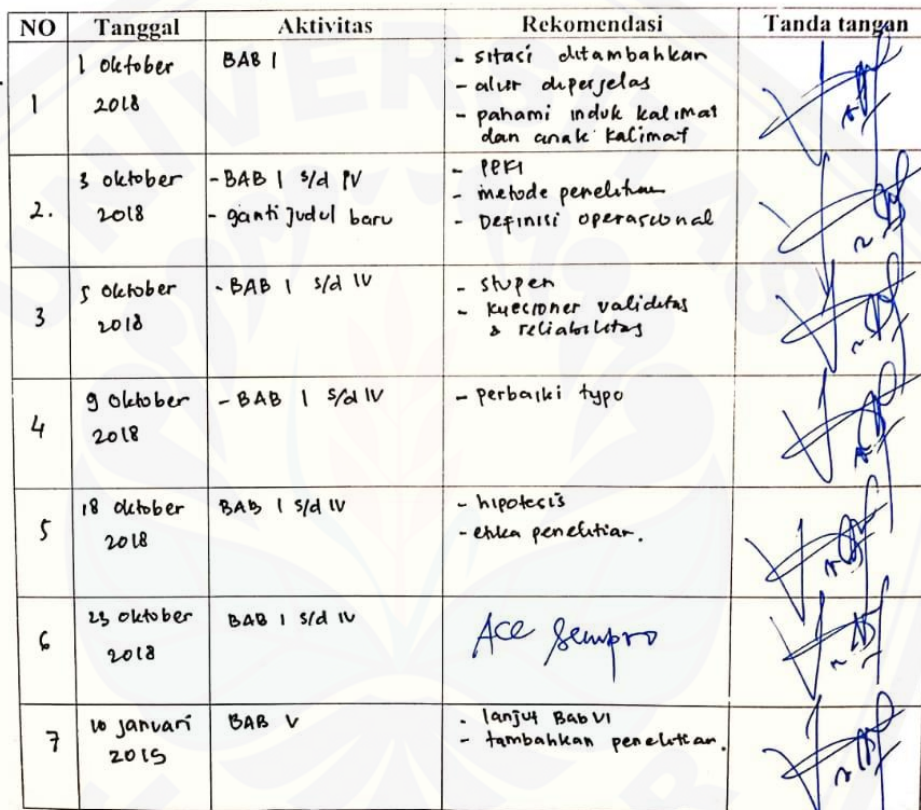 NO Tanggal Aktivitas Rekomendasi Tanda tangan
1 1 Oktober 2018 BAB I - sitasi ditambahkan
- alur diperjelas
- pahami induk kalimat
dan anak kalimat
2. 3 Oktober 2018 - BAB I s/d IV
- ganti judul baru
- metode penelitian
- Definisi operasional
3 5 Oktober 2018 - BAB I s/d IV
- kuesioner validitas
& reliabilitas
4 9 Oktober 2018 - BAB I s/d IV - perbaiki typo
5 18 Oktober 2018 BAB I s/d IV - hipotesis
- etika penelitian.
6 23 Oktober 2018 BAB I s/d IV ACC Sempro
7 10 januari BAB V - lanjut Bab VI
- tambahkan penelitian.
UNIVERSITAS